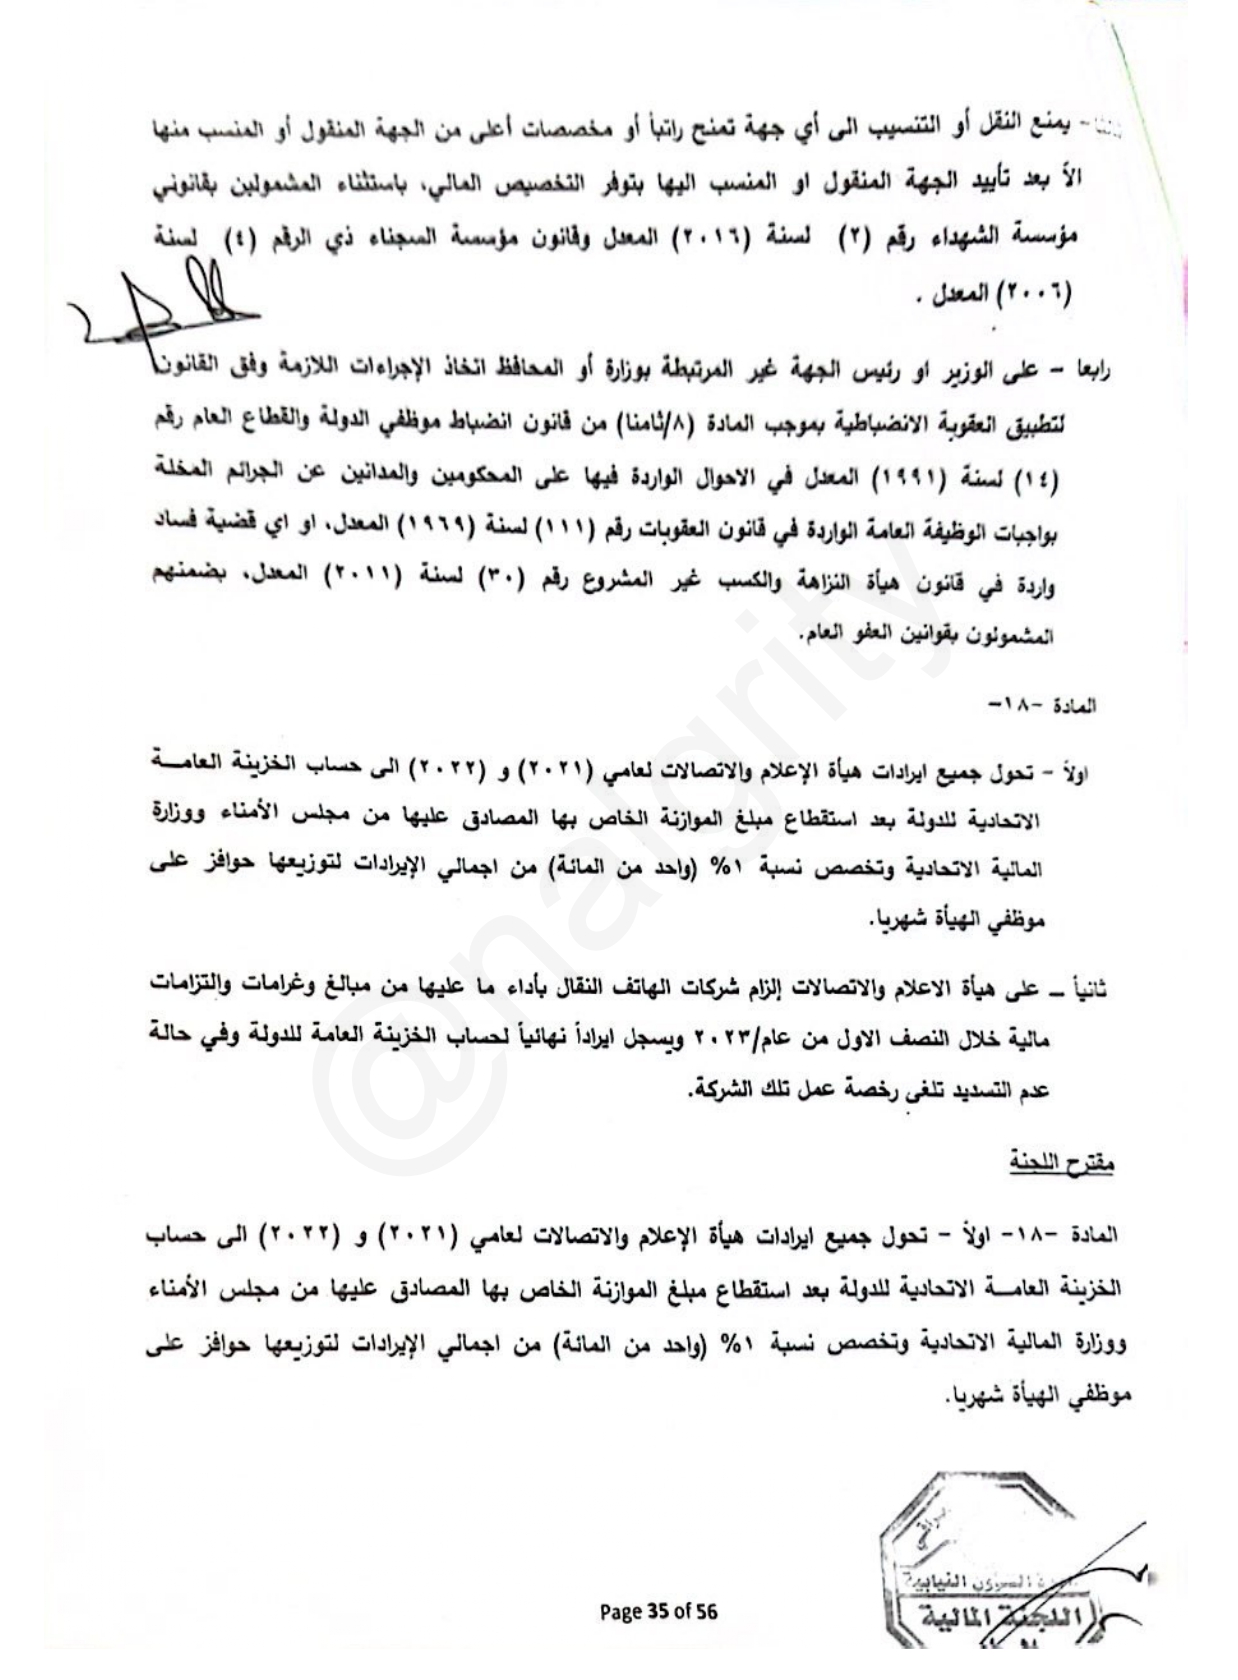 ثالثا - يمنع النقل أو التنسيب الى أي جهة تمنح راتباً أو مخصصات أعلى من الجهة المنقول أو المنسب منها
الاّ بعد تأييد الجهة المنقول او المنسب اليها بتوفر التخصيص المالي، باستثناء المشمولين بقانوني
مؤسسة الشهداء رقم (٢) لسنة (٢٠١٦) المعدل وقانون مؤسسة السجناء ذي الرقم (٤) لسنة
(٢٠٠٦) المعدل .
رابعا – على الوزير او رئيس الجهة غير المرتبطة بوزارة أو المحافظ اتخاذ الإجراءات اللازمة وفق القانون
لتطبيق العقوبة الانضباطية بموجب المادة (٨/ثامنا) من قانون انضباط موظفي الدولة والقطاع العام رقم
(١٤) لسنة (١٩٩١) المعدل في الاحوال الواردة فيها على المحكومين والمدانين عن الجرائم المخلة
بواجبات الوظيفة العامة الواردة في قانون العقوبات رقم (١١١) لسنة (١٩٦٩) المعدل، او اي قضية فساد
واردة في قانون هيأة النزاهة والكسب غير المشروع رقم (٣٠) لسنة (٢٠١١) المعدل، بضمنهم
المشمولون بقوانين العفو العام.
المادة -١٨-
اولاً - تحول جميع ايرادات هيأة الإعلام والاتصالات لعامي (٢٠٢١) و (٢٠٢٢) الى حساب الخزينة العامـــة
الاتحادية للدولة بعد استقطاع مبلغ الموازنة الخاص بها المصادق عليها من مجلس الأمناء ووزارة
المالية الاتحادية وتخصص نسبة ١% (واحد من المائة) من اجمالي الإيرادات لتوزيعها حوافز على
موظفي الهيأة شهريا.
ثانياً ــ على هيأة الاعلام والاتصالات إلزام شركات الهاتف النقال بأداء ما عليها من مبالغ وغرامات والتزامات
مالية خلال النصف الاول من عام/٢٠٢٣ ويسجل ايراداً نهائياً لحساب الخزينة العامة للدولة وفي حالة
عدم التسديد تلغى رخصة عمل تلك الشركة.
مقترح اللجنة
المادة -١٨- اولاً - تحول جميع ايرادات هيأة الإعلام والاتصالات لعامي (٢٠٢١) و (٢٠٢٢) الى حساب
الخزينة العامـــة الاتحادية للدولة بعد استقطاع مبلغ الموازنة الخاص بها المصادق عليها من مجلس الأمناء
ووزارة المالية الاتحادية وتخصص نسبة ١% (واحد من المائة) من اجمالي الإيرادات لتوزيعها حوافز على
موظفي الهيأة شهريا.
النيابية
اللجنة المالية
Page 35 of 56
@nalgrity